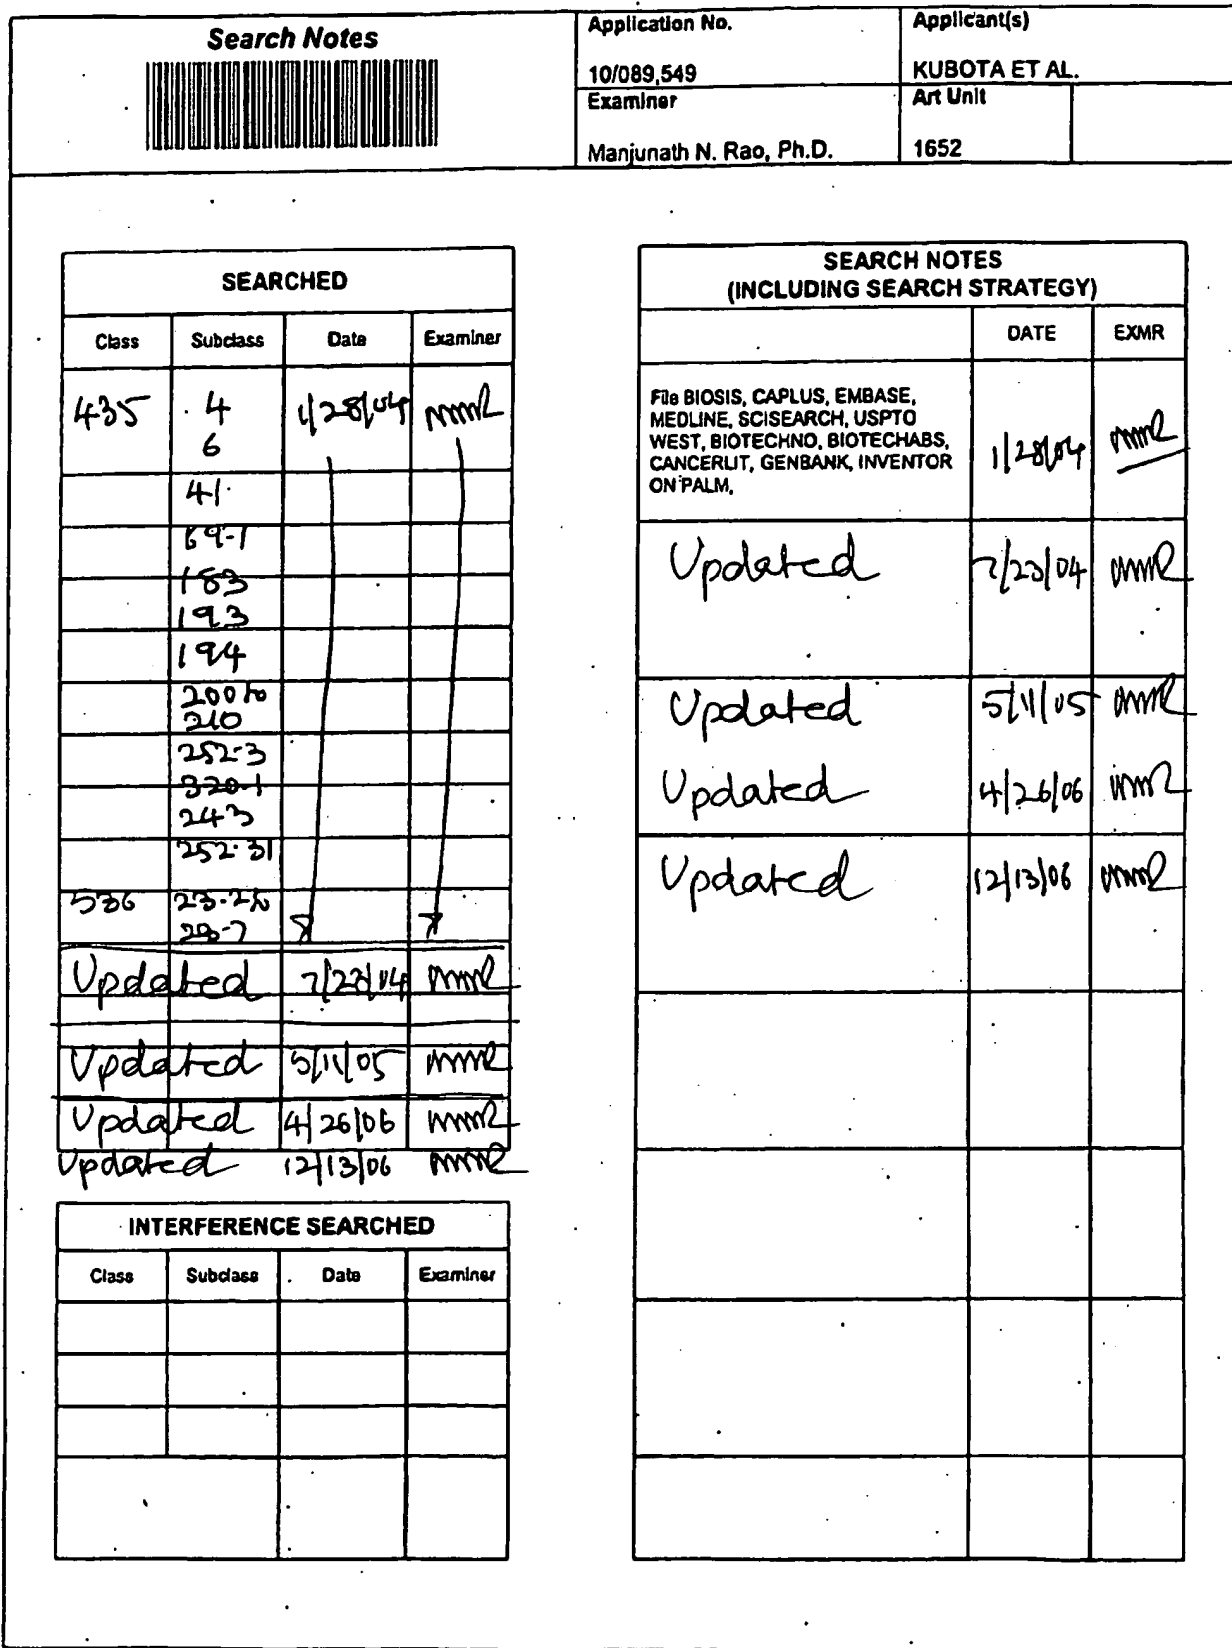 Search Notes
Application No.
Applicant(s)
10/089,549
KUBOTA ET AL.
Examiner
Art Unit
Manjunath N. Rao, Ph.D.
1652
SEARCHED
Class Subclass Date Examiner
435 4 1/28/04 MMR
6
41
69.1
183
193
194
200 to
210
252.3
320.1
243
252.31
536 23.2
23.7
Updated 7/23/04 MMR
Updated 5/11/05 MMR
Updated 4/26/06 MMR
Updated 12/13/06 MMR
INTERFERENCE SEARCHED
Class Subclass Date Examiner
SEARCH NOTES
(INCLUDING SEARCH STRATEGY)
DATE EXMR
File BIOSIS, CAPLUS, EMBASE,
MEDLINE, SCISEARCH, USPTO
WEST, BIOTECHNO, BIOTECHABS,
CANCERLIT, GENBANK, INVENTOR
ON PALM,
1/28/04 MMR
Updated 7/23/04 MMR
Updated 5/11/05 MMR
Updated 4/26/06 MMR
Updated 12/13/06 MMR